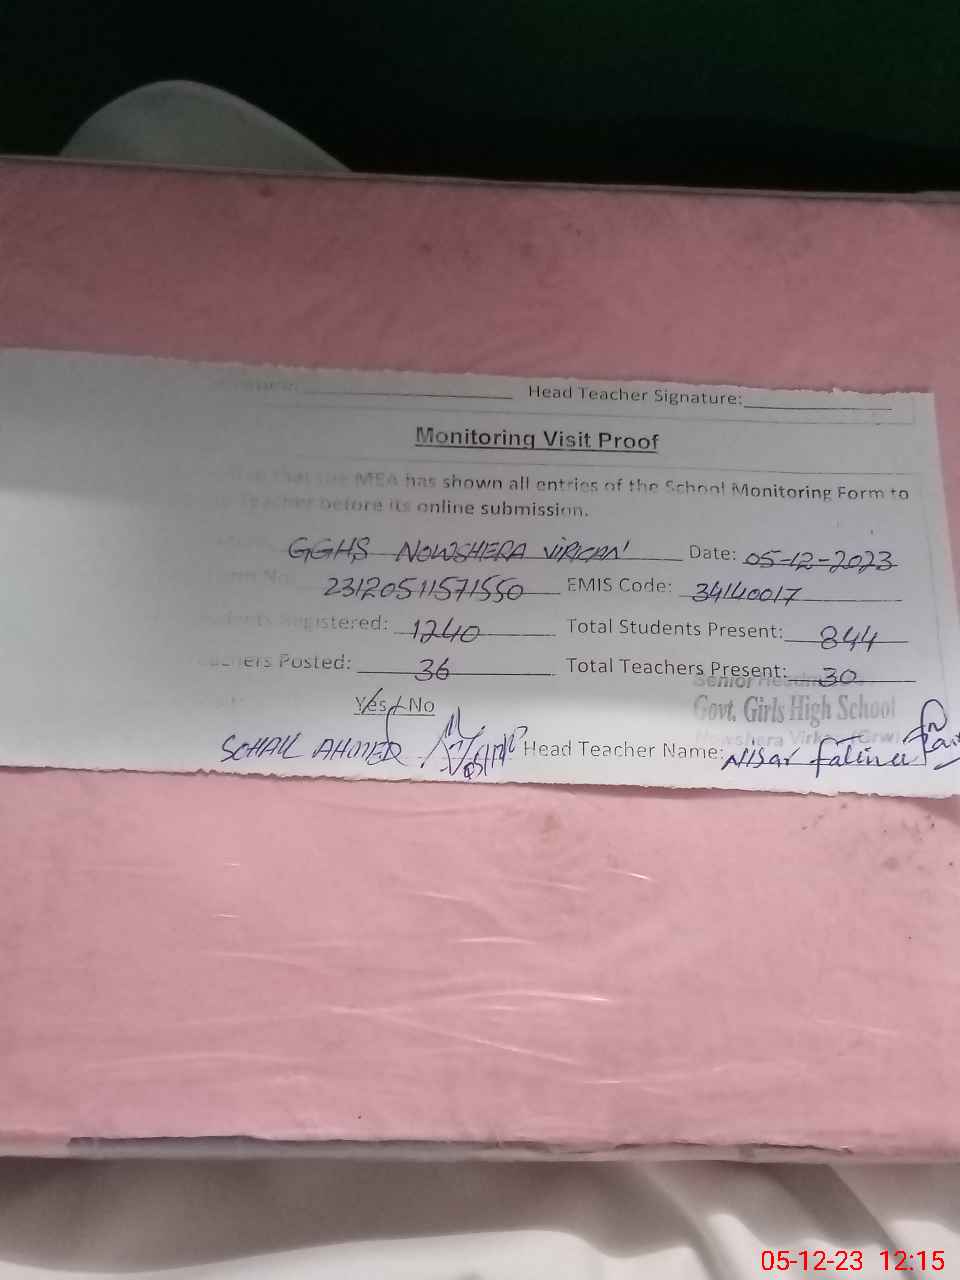 Head Teacher Signature:
Monitoring Visit Proof
that the MEA has shown all entries of the School Monitoring Form to
Teacher before its online submission.
GGHS NOWSHERA VIRKAN Date: 05-12-2023
23120511571550 EMIS Code: 34140017
Registered: 1240 Total Students Present: 844
Posted: 36 Total Teachers Present: 30
Senior
Yes / No Govt. Girls High School
Nowshera
SOHAIL AHMED Head Teacher Name: Nisar Fatima
05-12-23 12:15